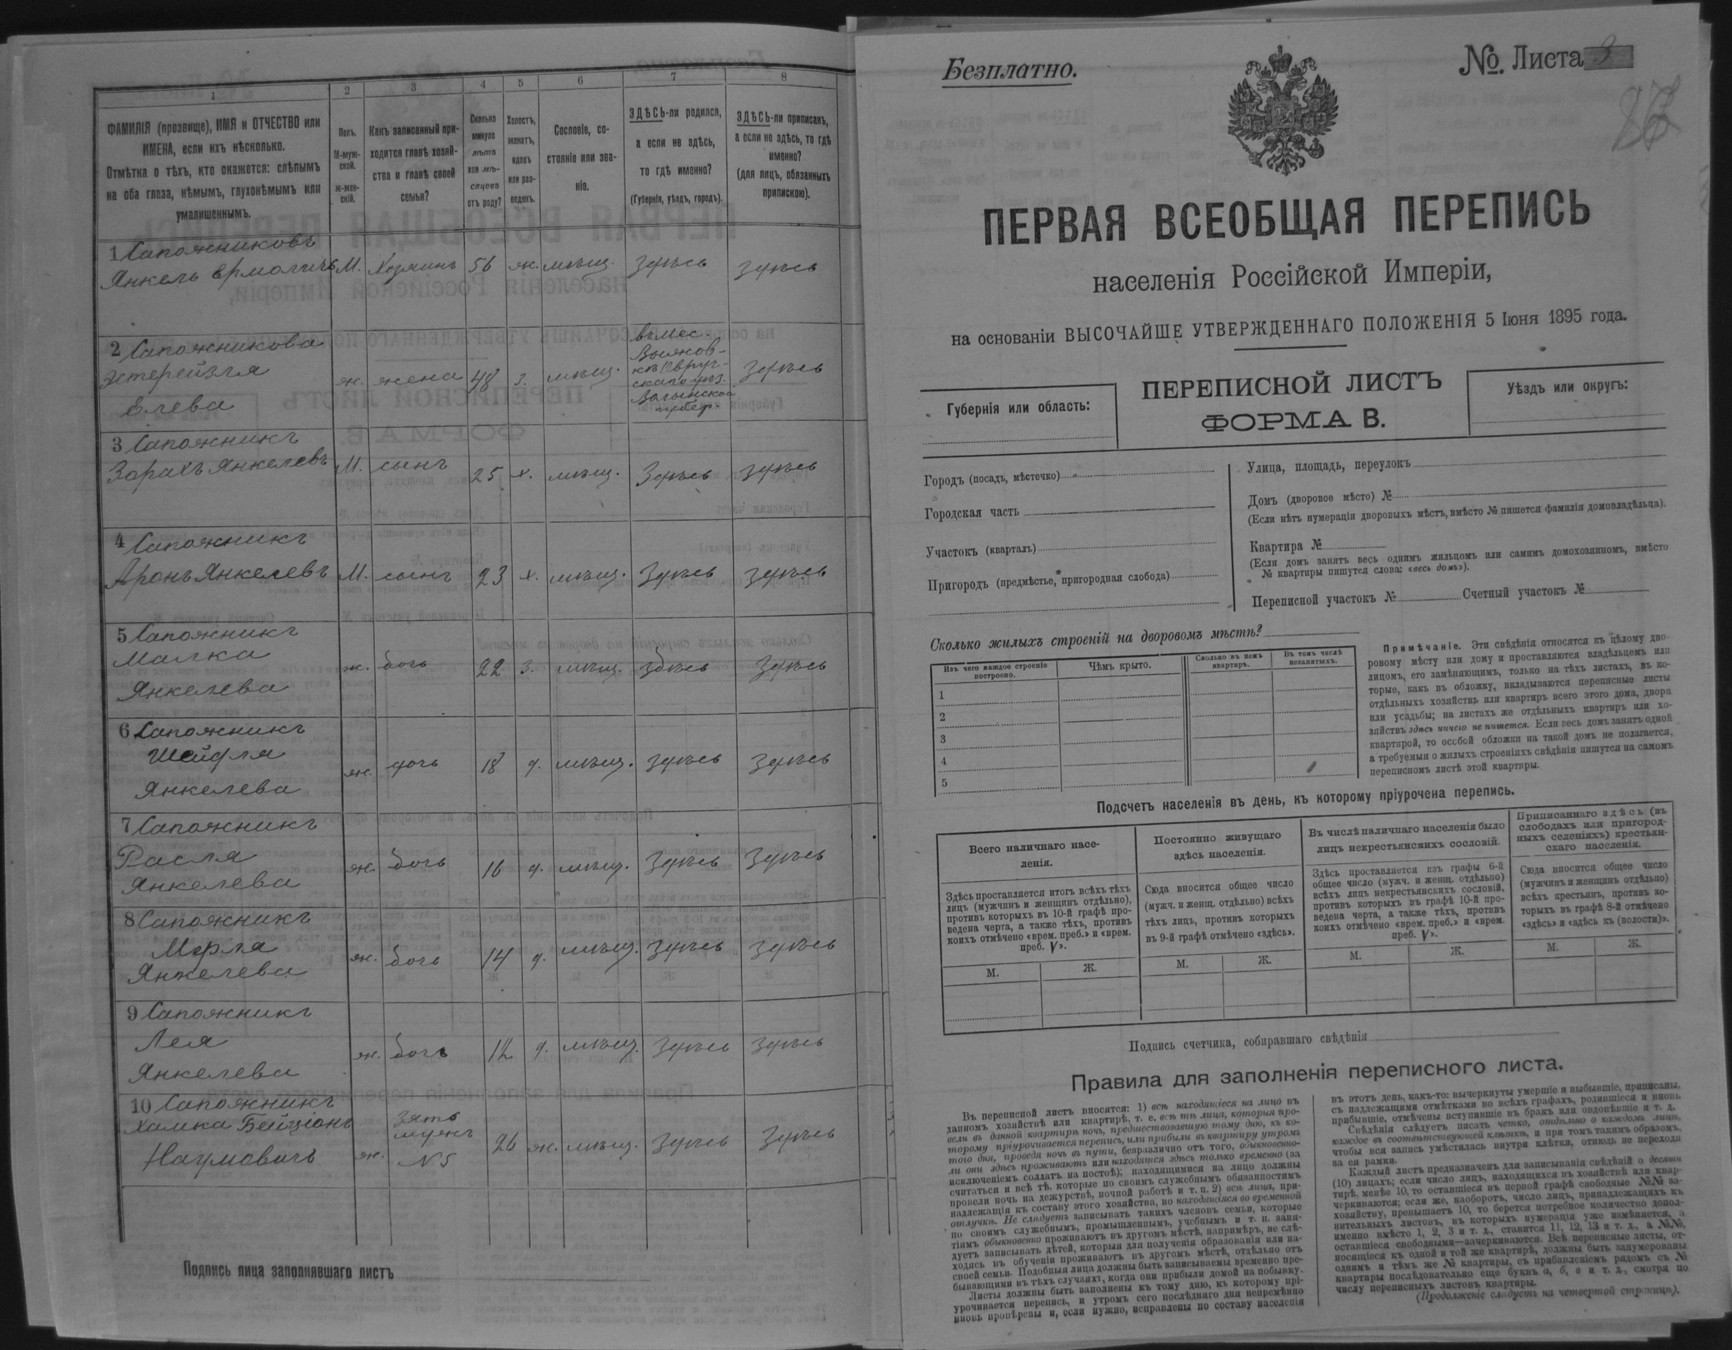 1
2
3
4
5
6
7
8
ФАМИЛІЯ (прозвище), ИМЯ и ОТЧЕСТВО или
ИМЕНА, если ихъ нѣсколько.
Отмѣтка о тѣхъ, кто окажется: слѣпымъ
на оба глаза, нѣмымъ, глухонѣмымъ или
умалишеннымъ.
Полъ.
М-муж-
ской.
ж-жен-
скій.
Какъ записанный при-
ходится главѣ хозяй-
ства и главѣ своей
семьи?
Сколько
минуло
лѣтъ
или мѣ-
сяцевъ
отъ роду?
Холостъ,
женатъ,
вдовъ
или раз-
веденъ.
Сословіе, со-
стояніе или зва-
ніе.
ЗДѢСЬ-ли родился,
а если не здѣсь,
то гдѣ именно?
(Губернія, уѣздъ, городъ).
ЗДѢСЬ-ли приписанъ,
а если не здѣсь, то гдѣ
именно?
(для лицъ, обязанныхъ
припискою).
1 Сапожниковъ
Янкель М. Хозяинъ 56 ж. мѣщ. здѣсь здѣсь
2 Сапожникова
Эстерейзля ж. жена 48 з. мѣщ. здѣсь
Волынской
губер.
3 Сапожникъ
Зорахъ Янкелевъ М. сынъ 25 х. мѣщ. здѣсь здѣсь
4 Сапожникъ
Аронъ Янкелевъ М. сынъ 23 х. мѣщ. здѣсь здѣсь
5 Сапожникъ
Малка ж. дочь 22 з. мѣщ. здѣсь здѣсь
Янкелева
6 Сапожникъ
Шейдля ж. дочь 18 д. мѣщ. здѣсь здѣсь
Янкелева
7 Сапожникъ
Расля ж. дочь 16 д. мѣщ. здѣсь здѣсь
Янкелева
8 Сапожникъ
Мерля ж. дочь 14 д. мѣщ. здѣсь здѣсь
Янкелева
9 Сапожникъ
Лея ж. дочь 12 д. мѣщ. здѣсь здѣсь
Янкелева
10 Сапожникъ
зять
мужъ
№ 5
Наумовичъ ж. 26 ж. мѣщ. здѣсь здѣсь
Подпись лица заполнявшаго листъ
Безплатно.
№ Листа 3
ПЕРВАЯ ВСЕОБЩАЯ ПЕРЕПИСЬ
населенія Россійской Имперіи,
на основаніи ВЫСОЧАЙШЕ УТВЕРЖДЕННАГО ПОЛОЖЕНІЯ 5 Іюня 1895 года.
Губернія или область:
ПЕРЕПИСНОЙ ЛИСТЪ
ФОРМА В.
Уѣздъ или округъ:
Городъ (посадъ, мѣстечко)
Городская часть
Участокъ (кварталъ)
Пригородъ (предмѣстье, пригородная слобода)
Улица, площадь, переулокъ
Домъ (дворовое мѣсто) №
(Если нѣтъ нумераціи дворовыхъ мѣстъ, вмѣсто № пишется фамилія домовладѣльца).
Квартира №
(Если домъ занятъ весь однимъ жильцомъ или самимъ домохозяиномъ, вмѣсто
№ квартиры пишутся слова: «весь домъ»).
Переписной участокъ № Счетный участокъ №
Сколько жилыхъ строеній на дворовомъ мѣстѣ?
Изъ чего каждое строеніе
построено.
Чѣмъ крыто.
Сколько въ немъ
квартиръ.
Въ томъ числѣ
незанятыхъ.
1
2
3
4
5
Примѣчаніе. Эти свѣдѣнія относятся къ цѣлому дво-
ровому мѣсту или дому и проставляются владѣльцемъ или
лицомъ, его замѣняющимъ, только на тѣхъ листахъ, въ ко-
торые, какъ въ обложку, вкладываются переписные листы
отдѣльныхъ хозяйствъ или квартиръ всего этого дома, двора
или усадьбы; на листахъ же отдѣльныхъ квартиръ или хо-
зяйствъ здѣсь ничего не пишется. Если весь домъ занятъ одной
квартирой, то особой обложки на такой домъ не полагается,
а требуемыя о жилыхъ строеніяхъ свѣдѣнія пишутся на самомъ
переписномъ листѣ этой квартиры.
Подсчетъ населенія въ день, къ которому пріурочена перепись.
Всего наличнаго насе-
ленія.
Здѣсь проставляется итогъ всѣхъ тѣхъ
лицъ (мужчинъ и женщинъ отдѣльно),
противъ которыхъ въ 10-й графѣ про-
ведена черта, а также тѣхъ, противъ
коихъ отмѣчено «врем. преб.» и «врем.
преб. V».
Постоянно живущаго
здѣсь населенія.
Сюда вносится общее число
(мужч. и женщ. отдѣльно) всѣхъ
тѣхъ лицъ, противъ которыхъ
въ 9-й графѣ отмѣчено «здѣсь».
Въ числѣ наличнаго населенія было
лицъ некрестьянскихъ сословій.
Здѣсь проставляется изъ графы 6-й
общее число (мужч. и женщ. отдѣльно)
всѣхъ лицъ некрестьянскихъ сословій,
противъ которыхъ въ графѣ 10-й про-
ведена черта, а также тѣхъ, противъ
коихъ отмѣчено «врем. преб.» и «врем.
преб. V».
Приписаннаго здѣсь (въ
слободахъ или пригород-
ныхъ селеніяхъ) крестьян-
скаго населенія.
Сюда вносится общее число
(мужчинъ и женщинъ отдѣльно)
всѣхъ крестьянъ, противъ ко-
торыхъ въ графѣ 8-й отмѣчено
«здѣсь» и «здѣсь къ (волости)».
М. Ж. М. Ж. М. Ж. М. Ж.
Подпись счетчика, собиравшаго свѣдѣнія
Правила для заполненія переписного листа.
Въ переписной листъ вносятся: 1) всѣ находящіеся на лицо въ
данномъ хозяйствѣ или квартирѣ, т. е. всѣ тѣ лица, которыя про-
вели въ данной квартирѣ ночь, предшествовавшую тому дню, къ ко-
торому пріурочивается перепись, или прибыли въ квартиру утромъ
того дня, проведя ночь въ пути, безразлично отъ того, обыкновенно-
ли они здѣсь проживаютъ или находятся здѣсь только временно (за
исключеніемъ солдатъ на постоѣ); находящимися на лицо должны
считаться и всѣ тѣ, которые по своимъ служебнымъ обязанностямъ
провели ночь на дежурствѣ, ночной работѣ и т. п. 2) всѣ лица, при-
надлежащія къ составу этого хозяйства, но находящіяся во временной
отлучкѣ. Не слѣдуетъ записывать такихъ членовъ семьи, которые
по своимъ служебнымъ, промышленнымъ, учебнымъ и т. п. заня-
тіямъ обыкновенно проживаютъ въ другомъ мѣстѣ, напримѣръ, не слѣ-
дуетъ записывать дѣтей, которыя для полученія образованія или на-
ходясь въ обученіи проживаютъ въ другомъ мѣстѣ, отдѣльно отъ
своей семьи. Подобныя лица должны быть записываемы временно пре-
бывающими въ тѣхъ случаяхъ, когда они прибыли домой на побывку.
Листы должны быть заполнены къ тому дню, къ которому прі-
урочивается перепись, и утромъ сего послѣдняго дня непремѣнно
вновь провѣрены и, если нужно, исправлены по составу населенія
въ этотъ день, какъ-то: вычеркнуты умершіе и выбывшіе, приписаны,
съ надлежащими отмѣтками во всѣхъ графахъ, родившіеся и вновь
прибывшіе, отмѣчены вступившіе въ бракъ или овдовѣвшіе и т. д.
Свѣдѣнія слѣдуетъ писать четко, отдѣльно о каждомъ лицѣ,
каждое въ соотвѣтствующей клѣткѣ, и при томъ такимъ образомъ,
чтобы вся запись умѣстилась внутри клѣтки, отнюдь не переходя
за ея рамки.
Каждый листъ предназначенъ для записыванія свѣдѣній о десяти
(10) лицахъ; если число лицъ, находящихся въ хозяйствѣ или квар-
тирѣ, менѣе 10, то оставшіеся въ первой графѣ свободные №№ за-
черкиваются; если же, наоборотъ, число лицъ, принадлежащихъ къ
хозяйству, превышаетъ 10, то берется потребное количество допол-
нительныхъ листовъ, въ которыхъ нумерація уже измѣняется, а
именно вмѣсто 1, 2, 3 и т. д., ставится 11, 12, 13 и т. д., а №№,
оставшіеся свободными—зачеркиваются. Всѣ переписные листы, от-
носящіеся къ одной и той же квартирѣ, должны быть занумерованы
однимъ и тѣмъ же № квартиры, съ прибавленіемъ рядомъ съ №
квартиры послѣдовательно еще буквъ а, б, в и т. д., смотря по
числу переписныхъ листовъ квартиры.
(Продолженіе слѣдуетъ на четвертой страницѣ).